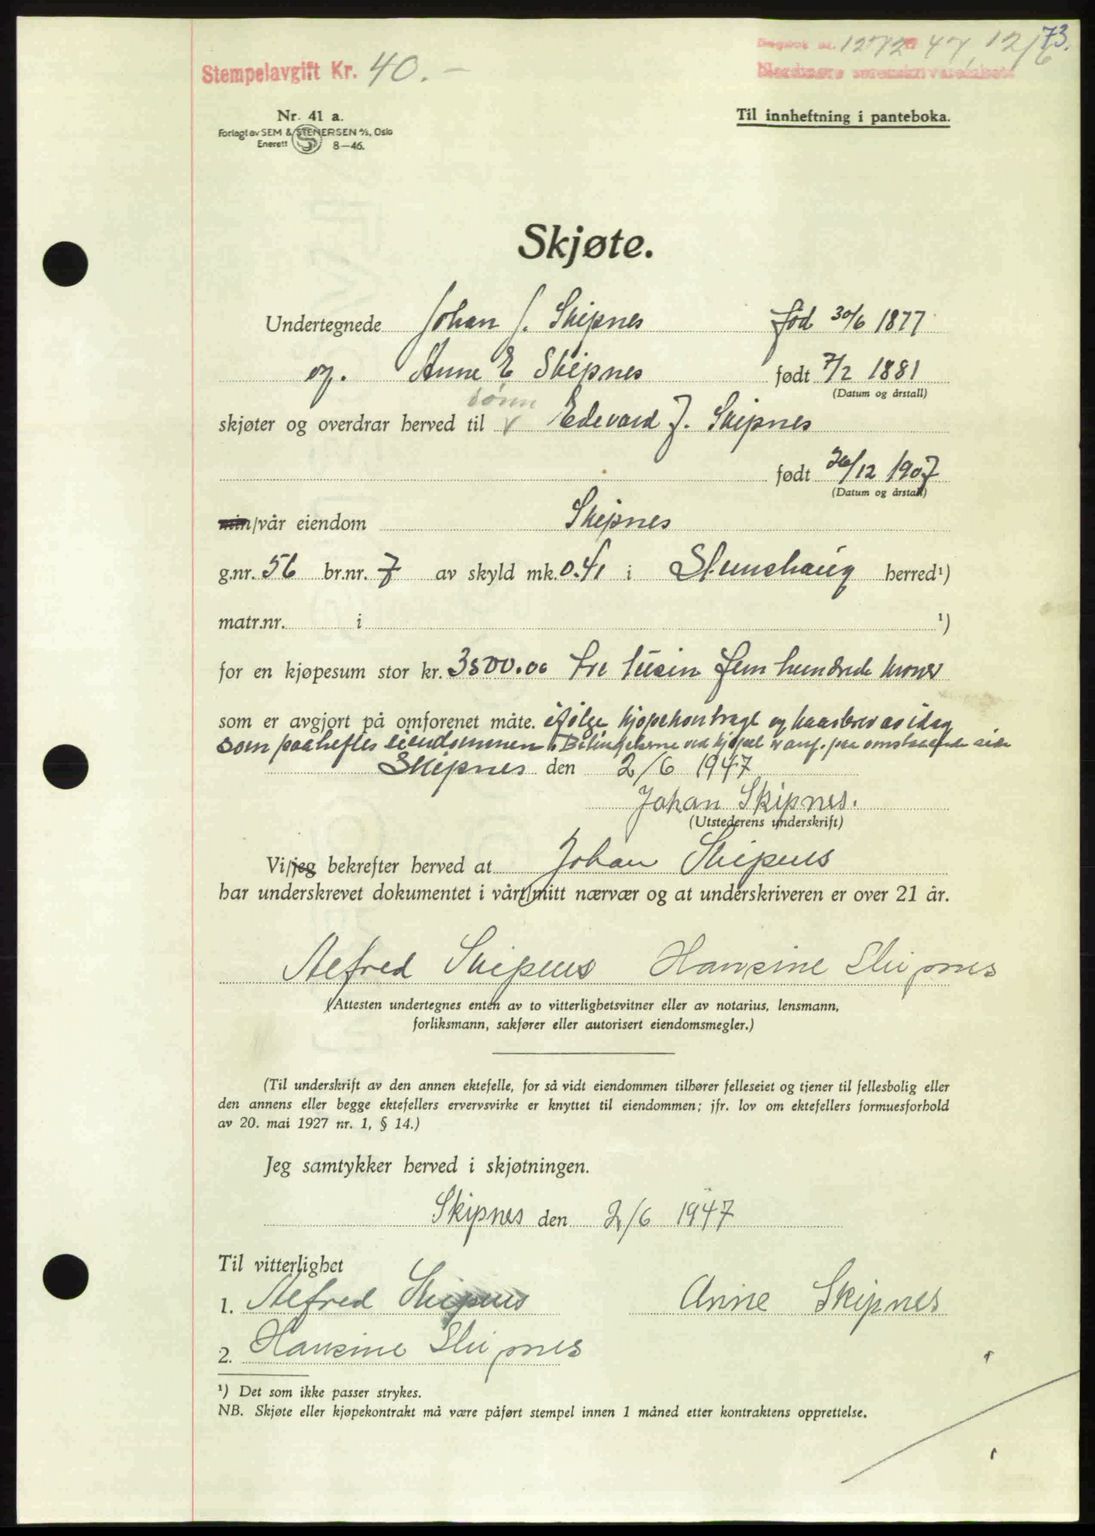 73.
Dagbok nr. 1272 47, 12/6
Stempelavgift Kr. 40.-
Nordmøre sorenskriverembete
Nr. 41 a.
Forlagt av SEM & STENERSEN A/S, Oslo
Enerett 8-46.
Til innheftning i panteboka.
Skjøte.
Undertegnede Johan J. Skipnes fød 30/6 1877
og. Anne E Skipnes født 7/2 1881
(Datum og årstall)
sønn
skjøter og overdrar herved til V Edevard J. Skipnes
født 26/12 1907
(Datum og årstall)
min/vår eiendom Skipnes
g.nr. 56 br.nr. 7 av skyld mk. 0.41 i Stemshaug herred¹)
matr.nr. i ¹)
for en kjøpesum stor kr. 3500.00 tre tusin fem hundrede kroner
som er avgjort på omforenet måte. ifølge kjøpekontragt og kaarbrev av idag
som paaheftes eiendommen. Betingelserne ved kjøpet er anf. paa omstaaende side
Skipnes den 2/6 1947
Johan Skipnes.
(Utstederens underskrift)
Vi/jeg bekrefter herved at Johan Skipnes
har underskrevet dokumentet i vårt/mitt nærvær og at underskriveren er over 21 år.
Alfred Skipnes Hansine Skipnes
(Attesten undertegnes enten av to vitterlighetsvitner eller av notarius, lensmann,
forliksmann, sakfører eller autorisert eiendomsmegler.)
(Til underskrift av den annen ektefelle, for så vidt eiendommen tilhører felleseiet og tjener til fellesbolig eller
den annens eller begge ektefellers ervervsvirke er knyttet til eiendommen; jfr. lov om ektefellers formuesforhold
av 20. mai 1927 nr. 1, § 14.)
Jeg samtykker herved i skjøtningen.
Skipnes den 2/6 1947
Til vitterlighet
1. Alfred Skipnes Anne Skipnes
2. Hansine Skipnes
¹) Det som ikke passer strykes.
NB. Skjøte eller kjøpekontrakt må være påført stempel innen 1 måned etter kontraktens opprettelse.